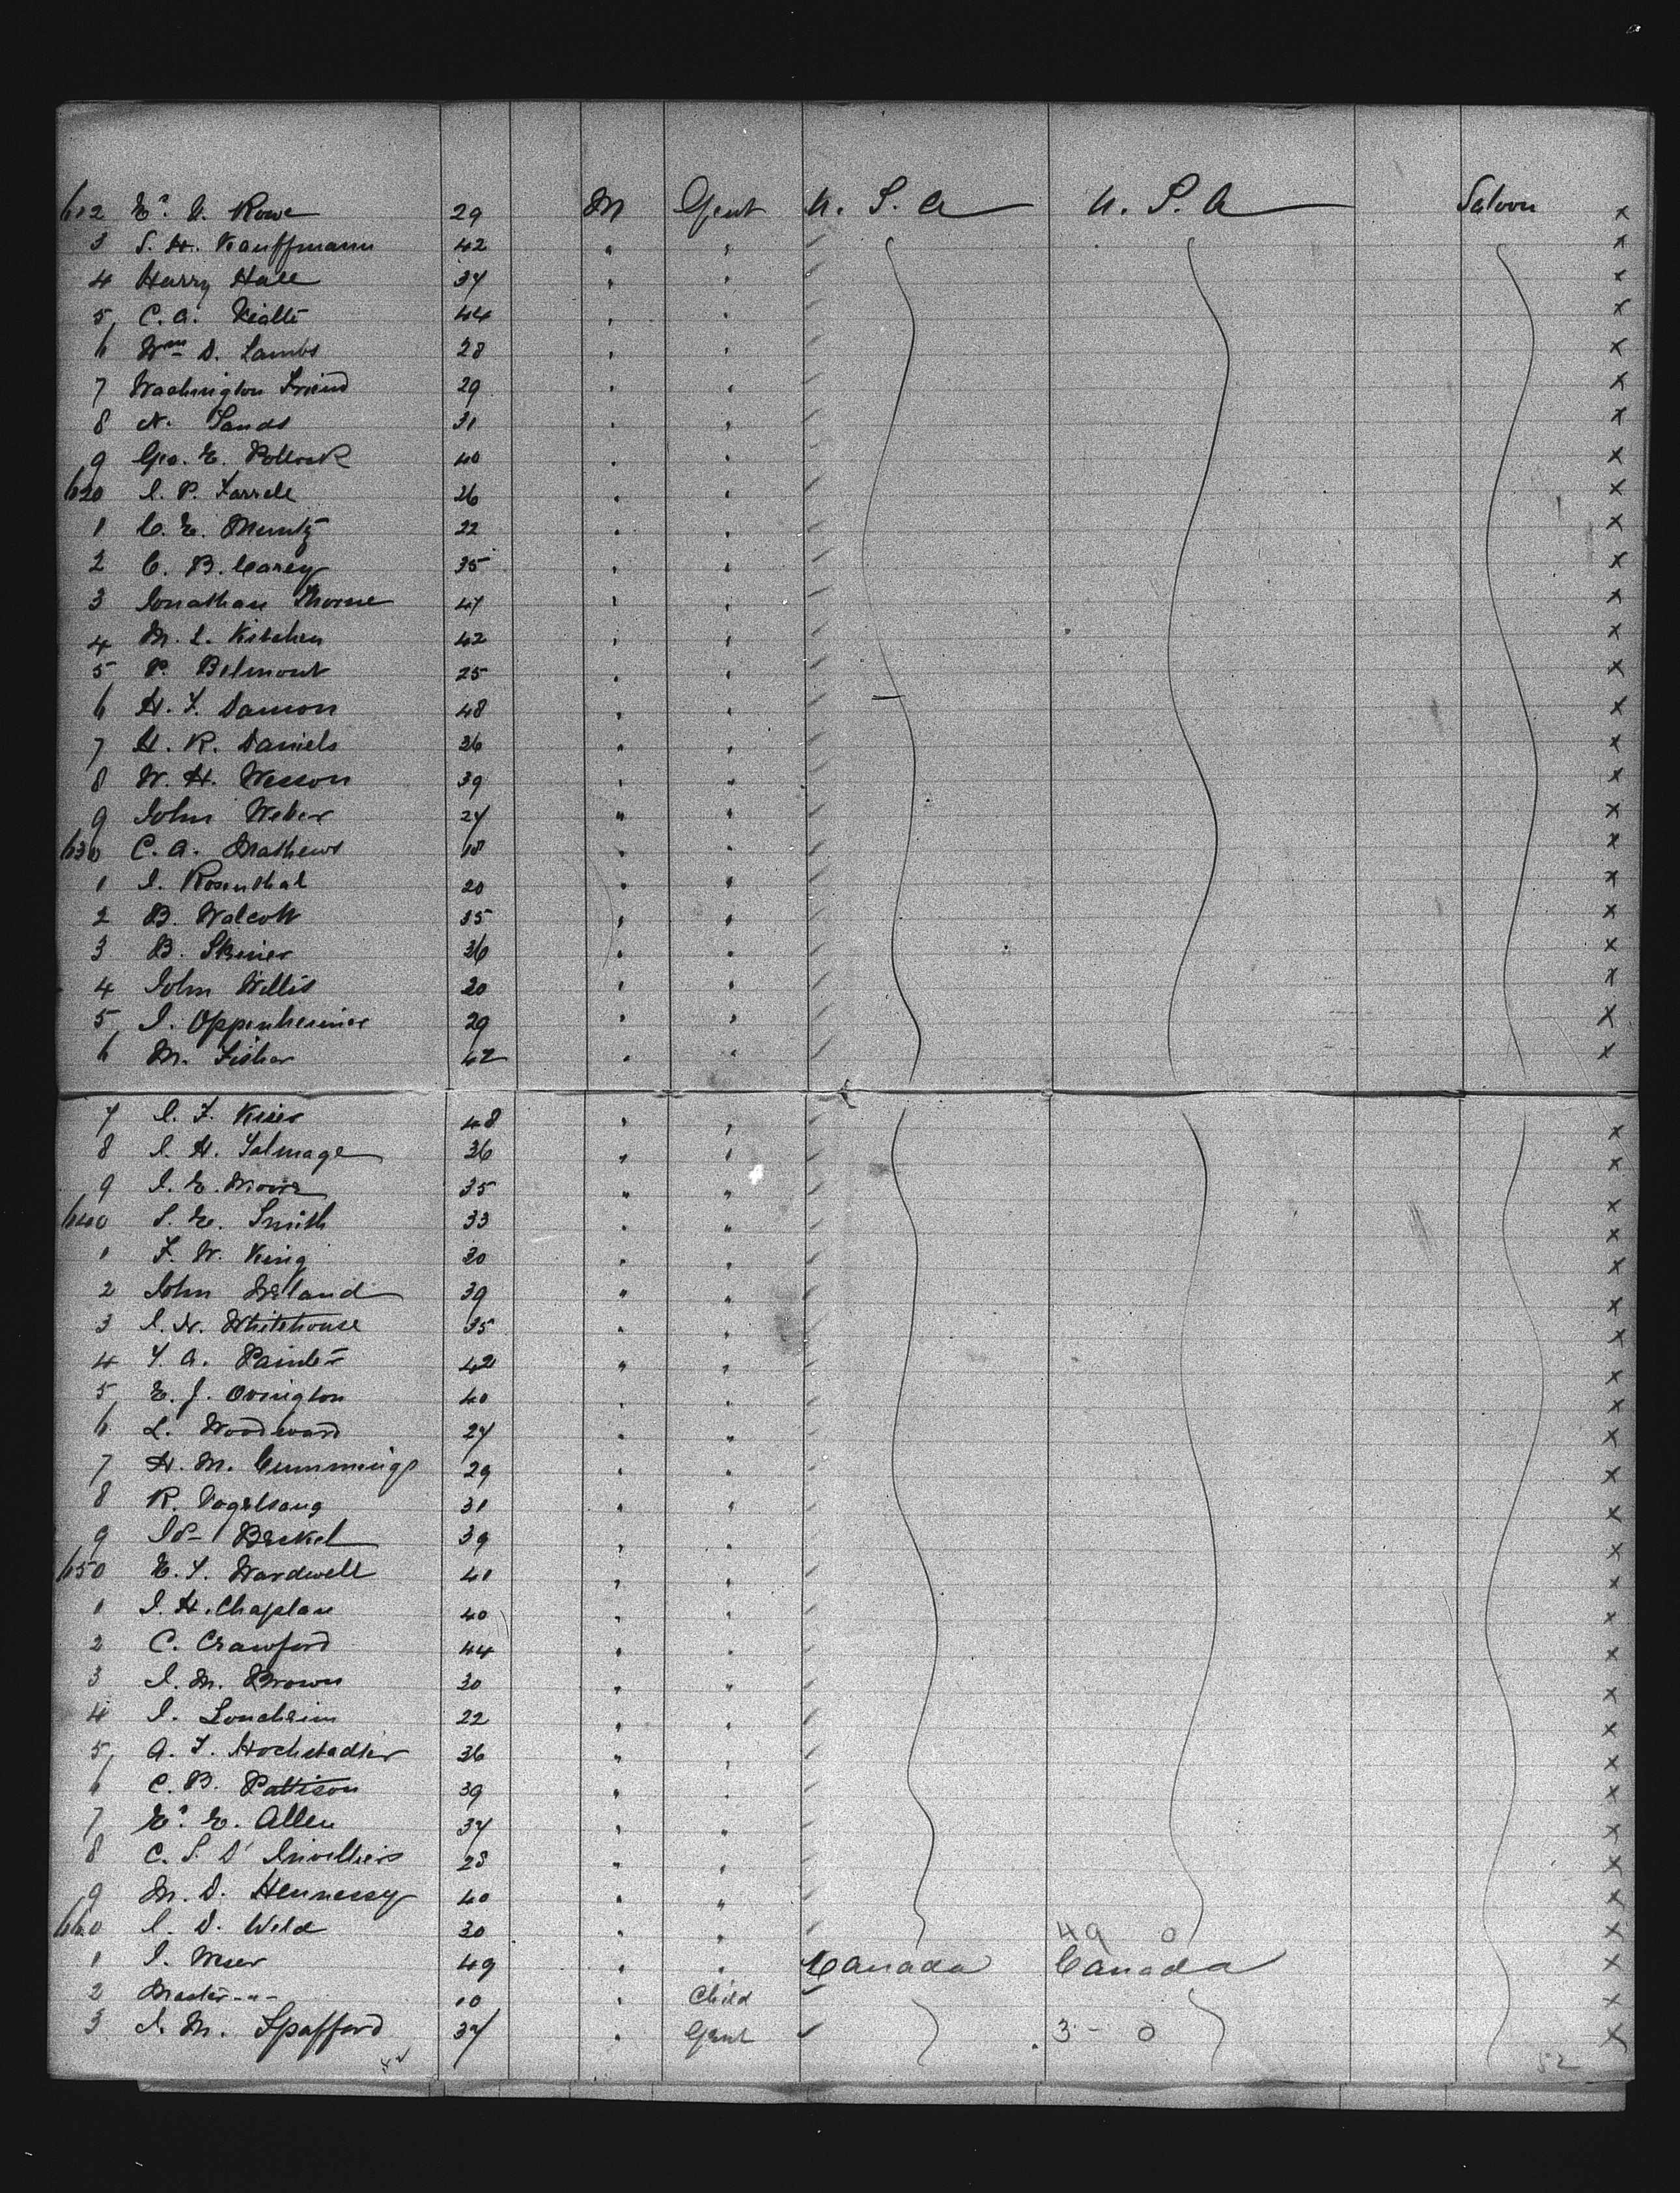 612 Ed. V. Rowe 29 M Gent U.S.A U.S.A Saloon x
3 S. H. Kauffmann 42 " " x
4 Harry Hall 34 " " x
5 C. A. 44 " " x
6 Wm D. Lambs 28 " " x
7 Washington Friend 29 " " x
8 N. Sands 31 " " x
9 Geo. E. Pollock 40 " " x
620 J. P. Farrell 26 " " x
1 C. E. Muntz 22 " " x
2 C. B. Carey 35 " " x
3 Jonathan Thorne 47 " " x
4 M. L. Kitchen 42 " " x
5 P. Belmont 25 " " x
6 H. F. Damon 48 " " x
7 H. R. Daniels 36 " " x
8 W. H. Wesson 39 " " x
9 John Weber 24 " " x
630 C. A. Mathews 18 " " x
1 J. Rosenthal 20 " " x
2 B. Walcott 35 " " x
3 B. 36 " " x
4 John Willis 20 " " x
5 J. Oppenheimer 29 " " x
6 M. Fisher 42 " " x
7 J. F. 48 " " x
8 J. H. Talmage 36 " " x
9 J. E. Moore 35 " " x
640 S. E. Smith 33 " " x
1 F. W. King 30 " " x
2 John Ireland 39 " " x
3 J. N. Whitehouse 35 " " x
4 T. A. Painter 42 " " x
5 E. J. Ovington 40 " " x
6 L. Woodward 24 " " x
7 H. M. Cummings 29 " " x
8 R. Vogelsang 31 " " x
9 Jos Beckel 39 " " x
650 E. T. Wardwell 41 " " x
1 J. H. Chaplan 40 " " x
2 C. Crawford 44 " " x
3 J. M. Brown 30 " " x
4 J. Loucheim 22 " " x
5 A. F. Hochstadter 36 " " x
6 C. B. Pattison 39 " " x
7 Ed. E. Allen 34 " " x
8 C. S. D' Invilliers 28 " " x
9 M. D. Hennessy 40 " " x
660 J. D. Weld 30 " " 49 0 x
1 J. 49 " " Canada Canada x
2 Master -"- 10 " Child x
3 J. M. Spafford 37 " Gent 3 - 0 x
52